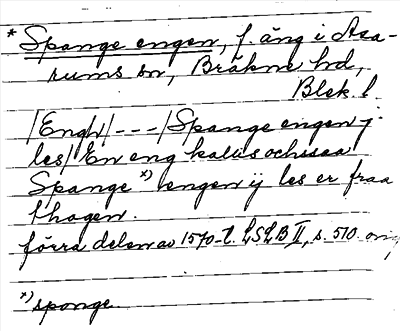 * Spange engen, f. äng i Asa-
rums sn, Bräkne hd,
Blek. l.
/Engh/ - - - /Spange engen j
les/ En eng kalás ochssaa
Spange *) engen ij les er fraa
thagen.
förra delen av 1570-t. LSLB II, s. 510. orig
*) sponge